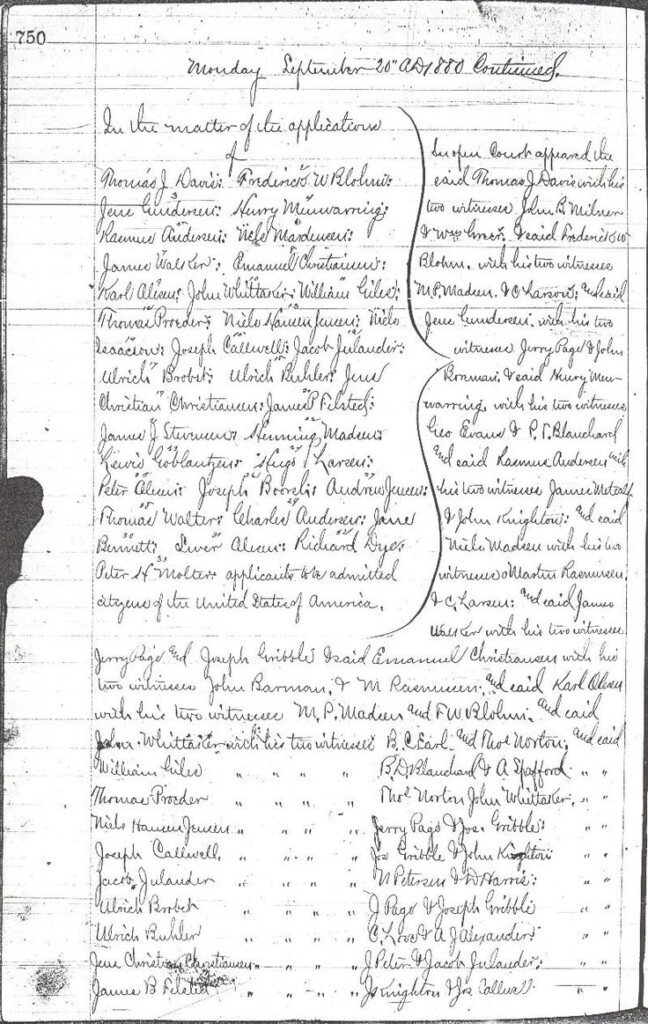 750
Monday September 20th AD 1880 Continued.
In the matter of the applications
of
Thomas J Davis: Frederick W Blohm:
Jens Gundersen: Henry Munwarring:
Rasmus Andersen: Niels Mardensen:
James Walker: Emanuel Christiansen:
Karl Olesen: John Whittaker: William Giles:
Thomas Procder: Niels Hansen Jensen: Niels
Isaacson: Joseph Callwell: Jacob Julander:
Ulrich Brobet: Ulrich Buhler: Jens
Christian Christiansen: James P Filsted:
James J Stevensen: Henning Madsen:
Lewis Larsen:
Peter Olesen: Joseph Andrew Jensen:
Thomas Walter: Charles Andersen: Jane
Bennett: Olesen: Richard Dye:
Peter H Molter: applicants to be admitted
citizens of the United States of America.
In open Court appeared the
said Thomas J Davis with his
two witnesses John B. Milner
& Wm Greer. & said Frederick W
Blohm. with his two witnesses
M. P. Madsen. & O Larson: and said
Jens Gundersen. with his two
witnesses Jerry Page & John
Boxman. & said Henry Mun-
warring. with his two witnesses
Geo Evans & P. T. Blanchard
and said Rasmus Andersen with
his two witnesses James Metcalf
& John Knighton: and said
Niels Madsen with his two
witnesses Martin Rasmusen.
& C. Larsen: and said James
Walker with his two witnesses
Jerry Page and Joseph Gribble & said Emanuel Christiansen with his
two witnesses John Barman. & M Rasmusen: and said Karl Olesen
with his two witnesses M. P. Madsen and F W Blohm. and said
John Whittaker with his two witnesses B. C. Earl. and Thos Norton, and said
William Giles " " " " B. D. Blanchard & A Spafford " "
Thomas Procder " " " " Thos Norton John Whittaker: " "
Niels Hansen Jensen " " " " Jerry Page & Jos. Gribble: " "
Joseph Callwell. " " " " Jos Gribble & John Knighton " "
Jacob Julander " " " " N Petersen & D Harris: " "
Ulrich Brobet " " " " J Page & Joseph Gribble " "
Ulrich Buhler " " " " C. Love & A J Alexander: " "
Jens Christian Christiansen " " " " J Peter & Jacob Julander: " "
James B Filsted " " " " J Knighton & Jos Callwell " "